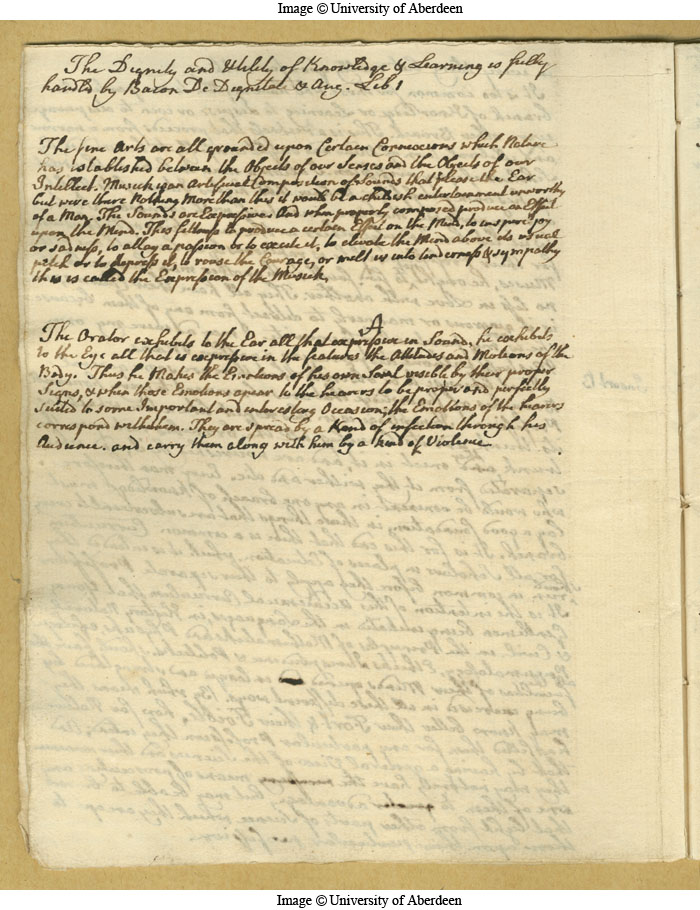 Image © University of Aberdeen
The Dignity and Utility of Knowledge & Learning is fully
handled by Bacon De Dignitate & Aug. Lib 1
The fine Arts are all grounded upon Certain Connexions which Nature
has established between the Objects of our Senses and the Objects of our
Intellect. Musick is an Artificial Composition of Sounds that please the Ear
but were there Nothing More than this it would be a childish entertainment unworthy
of a Man. The Sounds are Expressive And when properly composed produce an Effect
upon the Mind. This fitness to produce a certain Effect on the Mind, to inspire joy
or sadness, to allay a passion or to excite it, to elevate the Mind above its usual
pitch or to depress it, to rouse the Courage, or melt us into tenderness & sympathy
this is called the Expression of the Musick,
A
The Orator exhibits to the Ear all that expressive in Sound, he exhibits
to the Eye all that is expressive in the features the Attitudes and Motions of the
Body. Thus he Makes the Emotions of his own Soul visible by their proper
Signs, & when those Emotions apear to the hearers to be proper and perfectly
suited to some Important and interesting Occasion; the Emotions of the hearers
correspond with them. They are spread by a Kind of infection through his
Audience. and carry them along with him by a kind of Violence
Image © University of Aberdeen